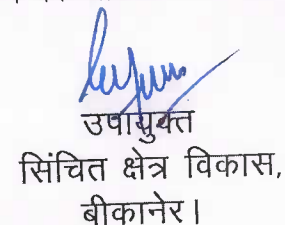 उपायुक्त
सिंचित क्षेत्र विकास,
बीकानेर।